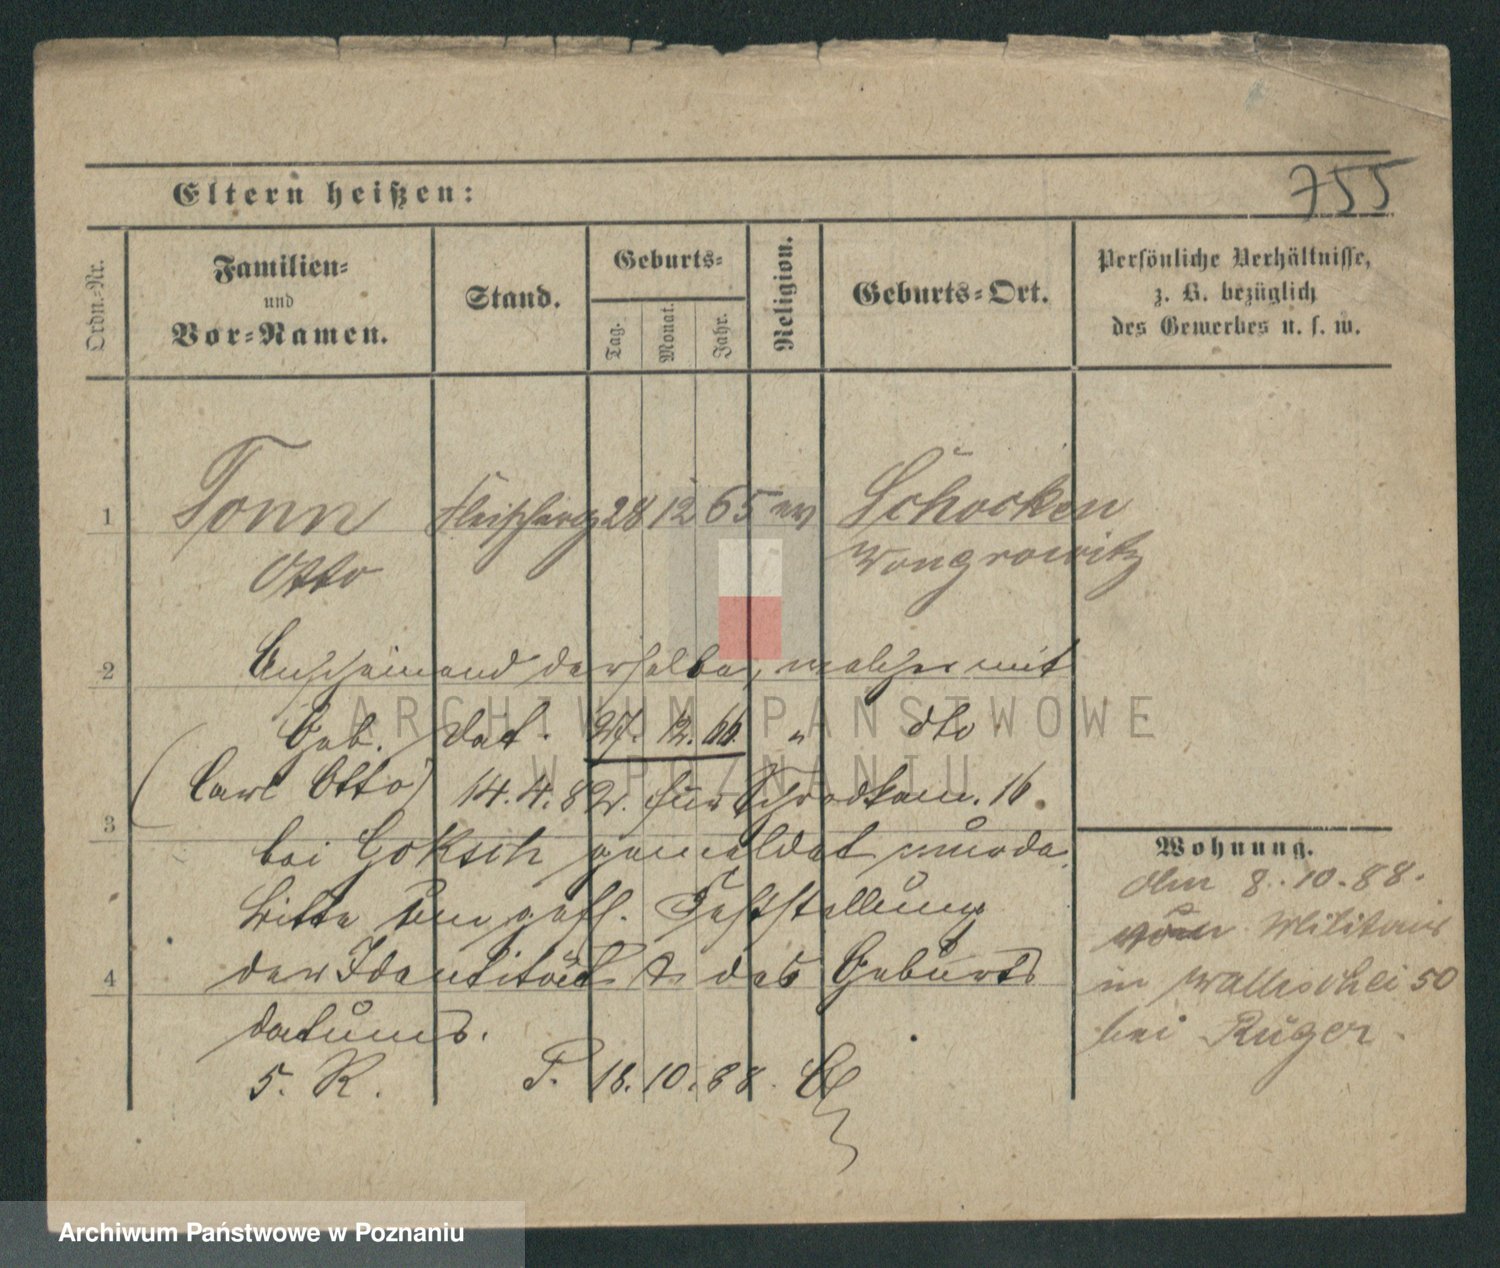 755
Eltern heißen:
Ordn.-Nr.
Familien-
und
Vor-Namen.
Stand.
Geburts-
Tag.
Monat.
Jahr.
Religion.
Geburts-Ort.
Persönliche Verhältnisse,
z. B. bezüglich
des Gewerbes u. s. w.
1 Tonn 28 12 65 ev Schocken
Otto Wongrowitz
2 Anscheinend derselbe, welcher mit
Geb. Dat. 27. 12. 66. " dto
(Carl Otto) 14.4.82. für 16.
3 bei Goksch gemeldet wurde.
Bitte um gefl. Feststellung
4 der Identität & des Geburts
datums.
5. R. P. 18.10.88.
Wohnung.
Am 8.10.88.
vom Militair
in Wallischei 50
bei Rüger
ARCHIWUM PAŃSTWOWE
W POZNANIU
Archiwum Państwowe w Poznaniu